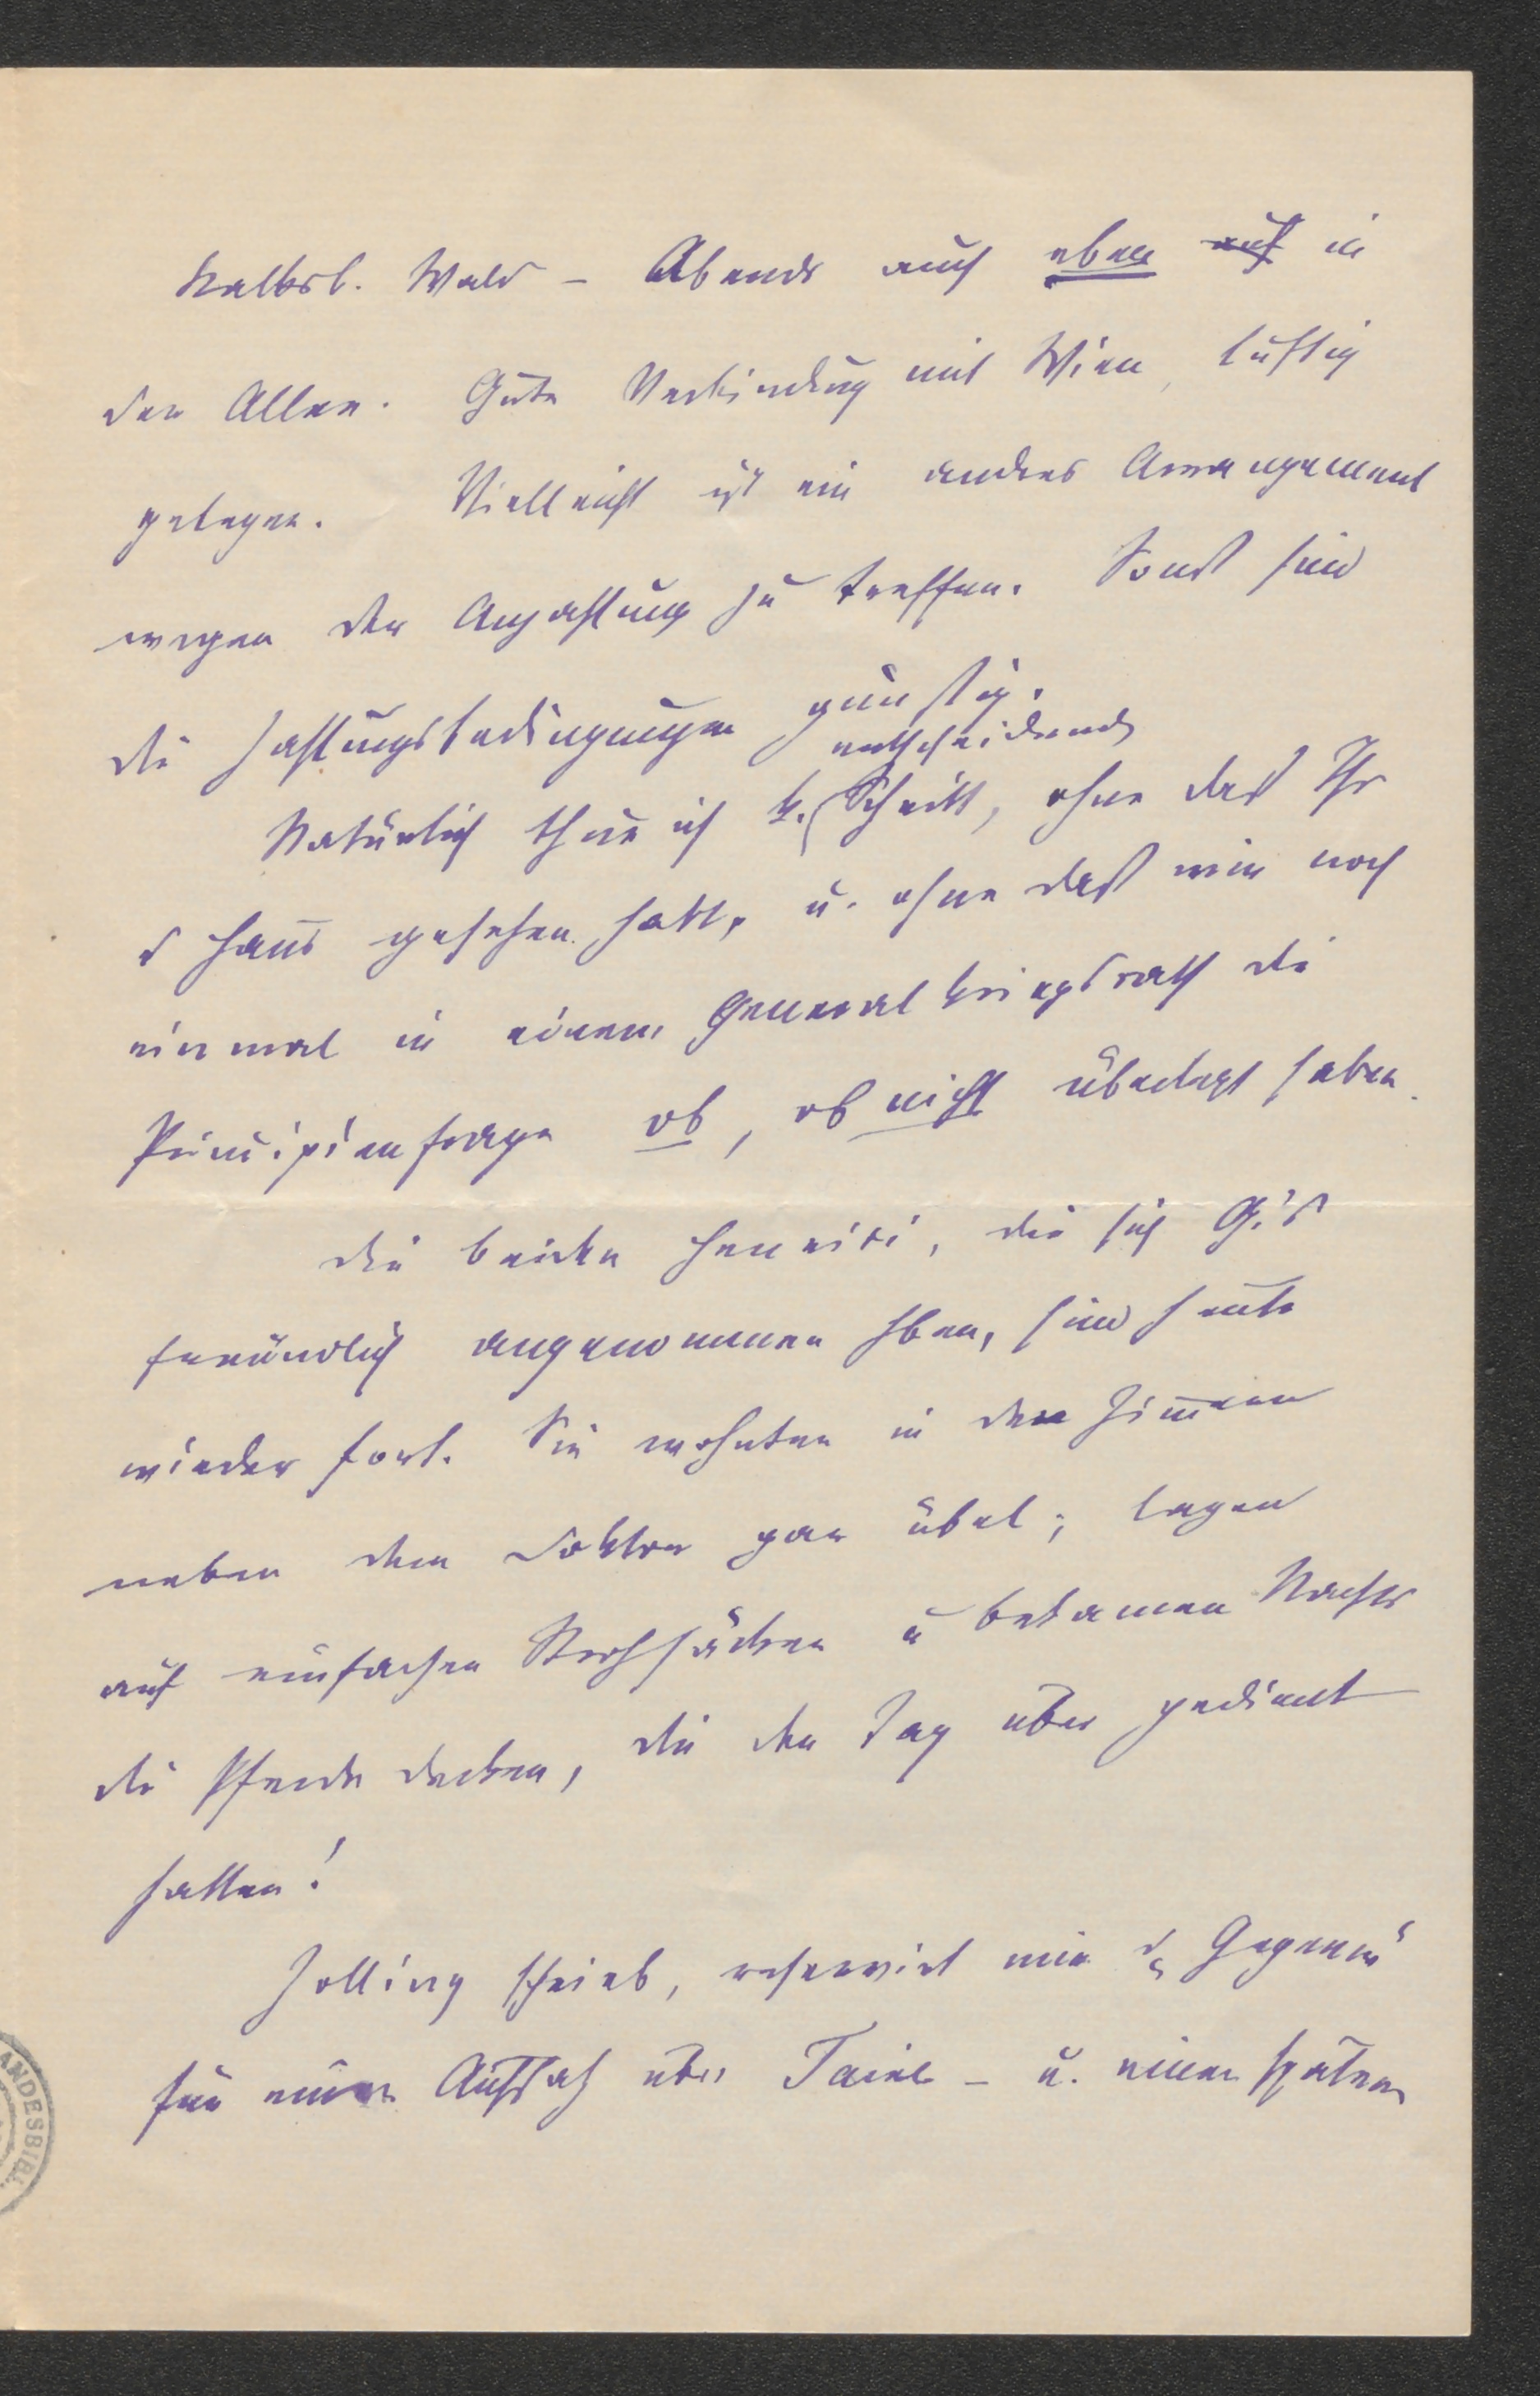 Kalksb. Wald – Abends auch eben auf in
der Allee. Gute Verbindung mit Wien, luftig
gelegen. Vielleicht ist ein andres Arrangement
wegen der Anzahlung zu treffen. Sonst sind
die Zahlungsbedingungen günstig.
entscheidend
Natürlich thue ich k. Schritt, ohne daß Ihr
d Haus gesehen habt, u. ohne daß wir noch
einmal in einem Generalkriegsrath die
Principienfrage ob, ob nicht überlegt haben.
Die beiden Henrici, die sich G's
freundlich angenommen hben, sind heute
wieder fort. Sie wohnten in den Zimmern
neben dem Doktor gar übel; lagen
auf einfachen Strohsäcken u bekamen Nachts
die Pferdedecken, die den Tag über gedient
hatten!
Zolling schrieb, reservirt mir d Gegenw
für einen Aufsatz über Taine – u. einen späteren
ANDESBIBL